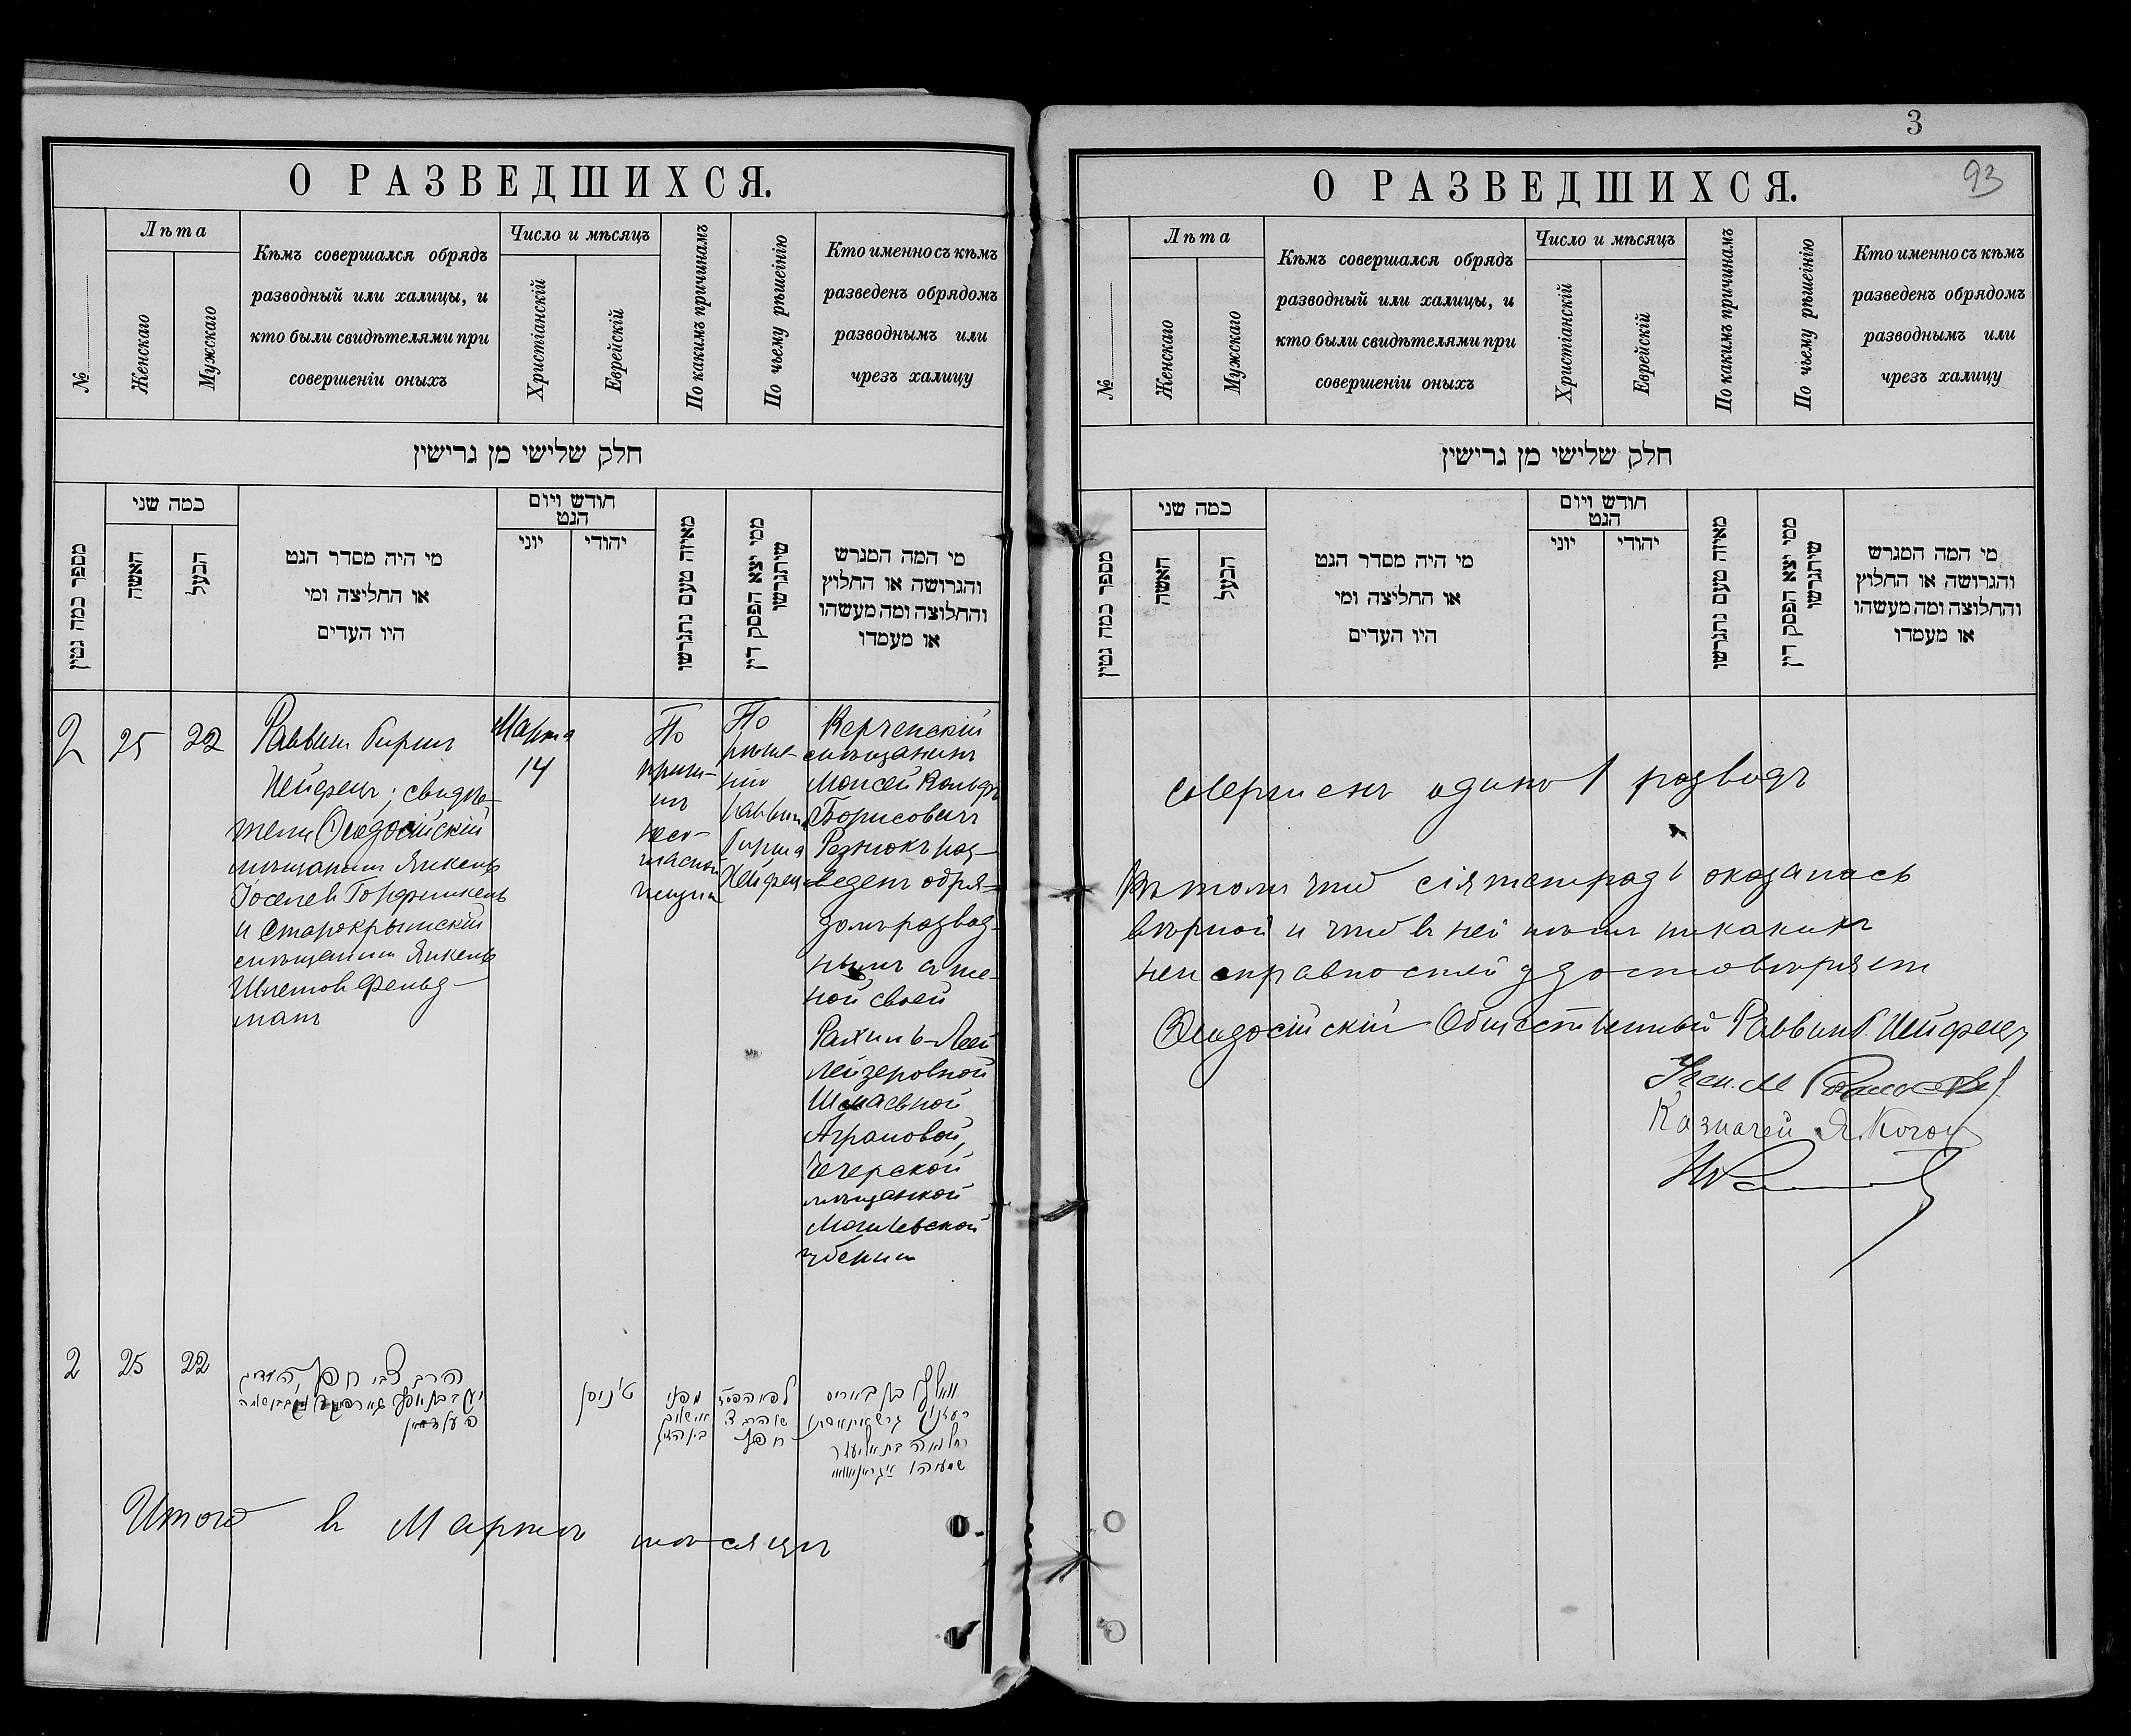 О РАЗВЕДШИХСЯ.
№
Лѣта
Женскаго
Мужскаго
Кѣмъ совершался обрядъ
разводный или халицы, и
кто были свидѣтелями при
совершеніи оныхъ
Число и мѣсяцъ
Христіанскій
Еврейскій
По какимъ причинамъ
По чьему рѣшеінію
Кто именно съ кѣмъ
разведенъ обрядомъ
разводнымъ или
чрезъ халицу
חלק שלישי מן גרישין
מספר כמה גטין
כמה שני
האשה
הבעל
מי היה מסדר הגט
או החליצה ומי
היו העדים
חודש ויום
הגט
יוני
יהודי
מאיזה טעם נתגרשו
ממי יצא הפסק דין
שיתגרשו
מי המה המגרש
והגרושה או החלוץ
והחלוצה ומה מעשהו
או מעמדו
2
25
22
Раввинъ Гиршъ
Хейфецъ; свидѣ-
тели Ѳеодосійскій
мѣщанинъ Янкель
Іоселев
и Старокрымскій
мѣщанинъ Янкель
Фельд-
манъ
Марта
14
По
причи-
нѣ
несо-
гласной
жизни
По
рѣше-
нію
раввина
Гирша
Хейфеца
Керченскій
мѣщанинъ
Моисей Вольфъ
Борисовичъ
Резникъ раз-
веденъ обря-
домъ развод-
нымъ съ же-
ной своей
Рахиль-Леей
Лейзеровной
Шмаевной
Аграновой,
Чечерской
мѣщанкой
Могилевской
губерніи
2
25
22
הרב צבי חפץ, העדים
ט' ניסן
מפני
אי שלום
לפי הפסק
שהרב צ
חפץ
וואלף בן בארים
רחל לאה בת אליעזר
Итого въ Мартѣ мѣсяцѣ
3
93
О РАЗВЕДШИХСЯ.
№
Лѣта
Женскаго
Мужскаго
Кѣмъ совершался обрядъ
разводный или халицы, и
кто были свидѣтелями при
совершеніи оныхъ
Число и мѣсяцъ
Христіанскій
Еврейскій
По какимъ причинамъ
По чьему рѣшеінію
Кто именно съ кѣмъ
разведенъ обрядомъ
разводнымъ или
чрезъ халицу
חלק שלישי מן גרישין
מספר כמה גטין
כמה שני
האשה
הבעל
מי היה מסדר הגט
או החליצה ומי
היו העדים
חודש ויום
הגט
יוני
יהודי
מאיזה טעם נתגרשו
ממי יצא הפסק דין
שיתגרשו
מי המה המגרש
והגרושה או החלוץ
והחלוצה ומה מעשהו
או מעמדו
совершенъ одинъ 1 разводъ
Въ томъ что сія тетрадь оказалась
вѣрной и что въ ней нѣтъ никакихъ
неисправностей удостовѣряетъ
Ѳеодосійскій Общественный Раввинъ Г. Хейфецъ
Казначей Я. Коган